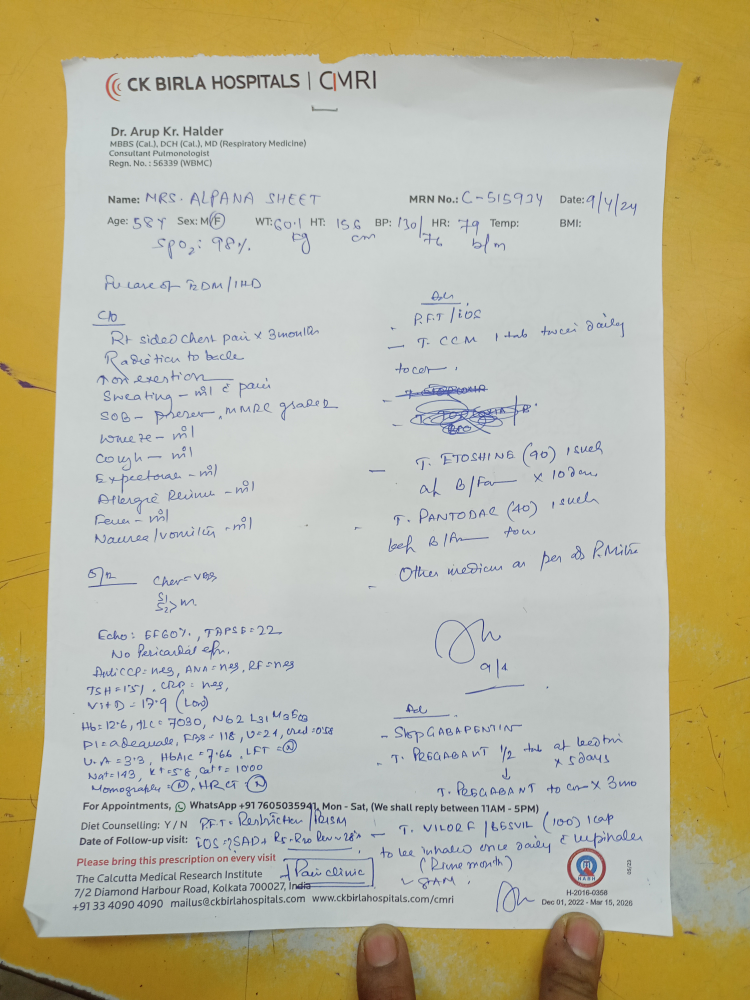 CK BIRLA HOSPITALS | CMRI
Dr. Arup Kr. Halder
MBBS (Cal.), DCH (Cal.), MD (Respiratory Medicine)
Consultant Pulmonologist
Regn. No. : 56339 (WBMC)
Name: MRS. ALPANA SHEET MRN No.: C-515934 Date: 9/4/24
Age: 58Y Sex: M/F WT: 60.1 kg HT: 156 cm BP: 130/76 HR: 79 b/m Temp: BMI:
SpO2: 98%
Fu case of T2DM/IHD
C/o
Rt sided chest pain x 3 months
Radiation to back
↑ on exertion
Sweating - nil c pain
SOB - present, MMRC grade 2
Wheeze - nil
Cough - nil
Expectorate - nil
Allergic - nil
Fever - nil
Nausea/vomiting - nil
O/E
Chest = VBS
S1
S2 > N
Echo: EF 60%, TAPSE = 22
No Pericardial effn.
Anti CCP = neg, ANA = neg, RF = neg
TSH = 1.51, CRP = neg,
Vit D = 17.9 (Low)
Hb = 12.6, TLC = 7030, N62 L31 M3 E03
Pl = adequate, FBS = 118, U = 24, creat = 0.58
U.A = 3.3, HbA1c = 7.66, LFT = N
Na+ = 143, K+ = 5.8,
Momography = N, HRCT = N
Adv
- P.F.T / iOS
- T. CCM 1 tab twice daily
to con.
- T. ETOSHINE (90) 1 such
af B/Fa x 10 days
- T. PANTODAC (40) 1 such
bef B/Fa
- Other medicines as per P. Mitra
9/4
Ad
- Stop GABAPENTIN
- T. PREGABANT 1/2 tab at bedtime
x 5 days
↓
T. PREGABANT to con x 3 mo
- T. VILOR F / BESVIL (100) 1 cap
to be inhaled once daily c lupihaler
(Rinse mouth)
- 8AM.
For Appointments, WhatsApp +91 7605035941, Mon - Sat, (We shall reply between 11AM - 5PM)
Diet Counselling: Y / N P.F.T = Restriction / PRISM
Date of Follow-up visit: iOS = SAD+
Please bring this prescription on every visit
+ Pain clinic
The Calcutta Medical Research Institute
7/2 Diamond Harbour Road, Kolkata 700027, India
+91 33 4090 4090 mailus@ckbirlahospitals.com www.ckbirlahospitals.com/cmri
NABH
H-2016-0358
Dec 01, 2022 - Mar 15, 2026
05/23